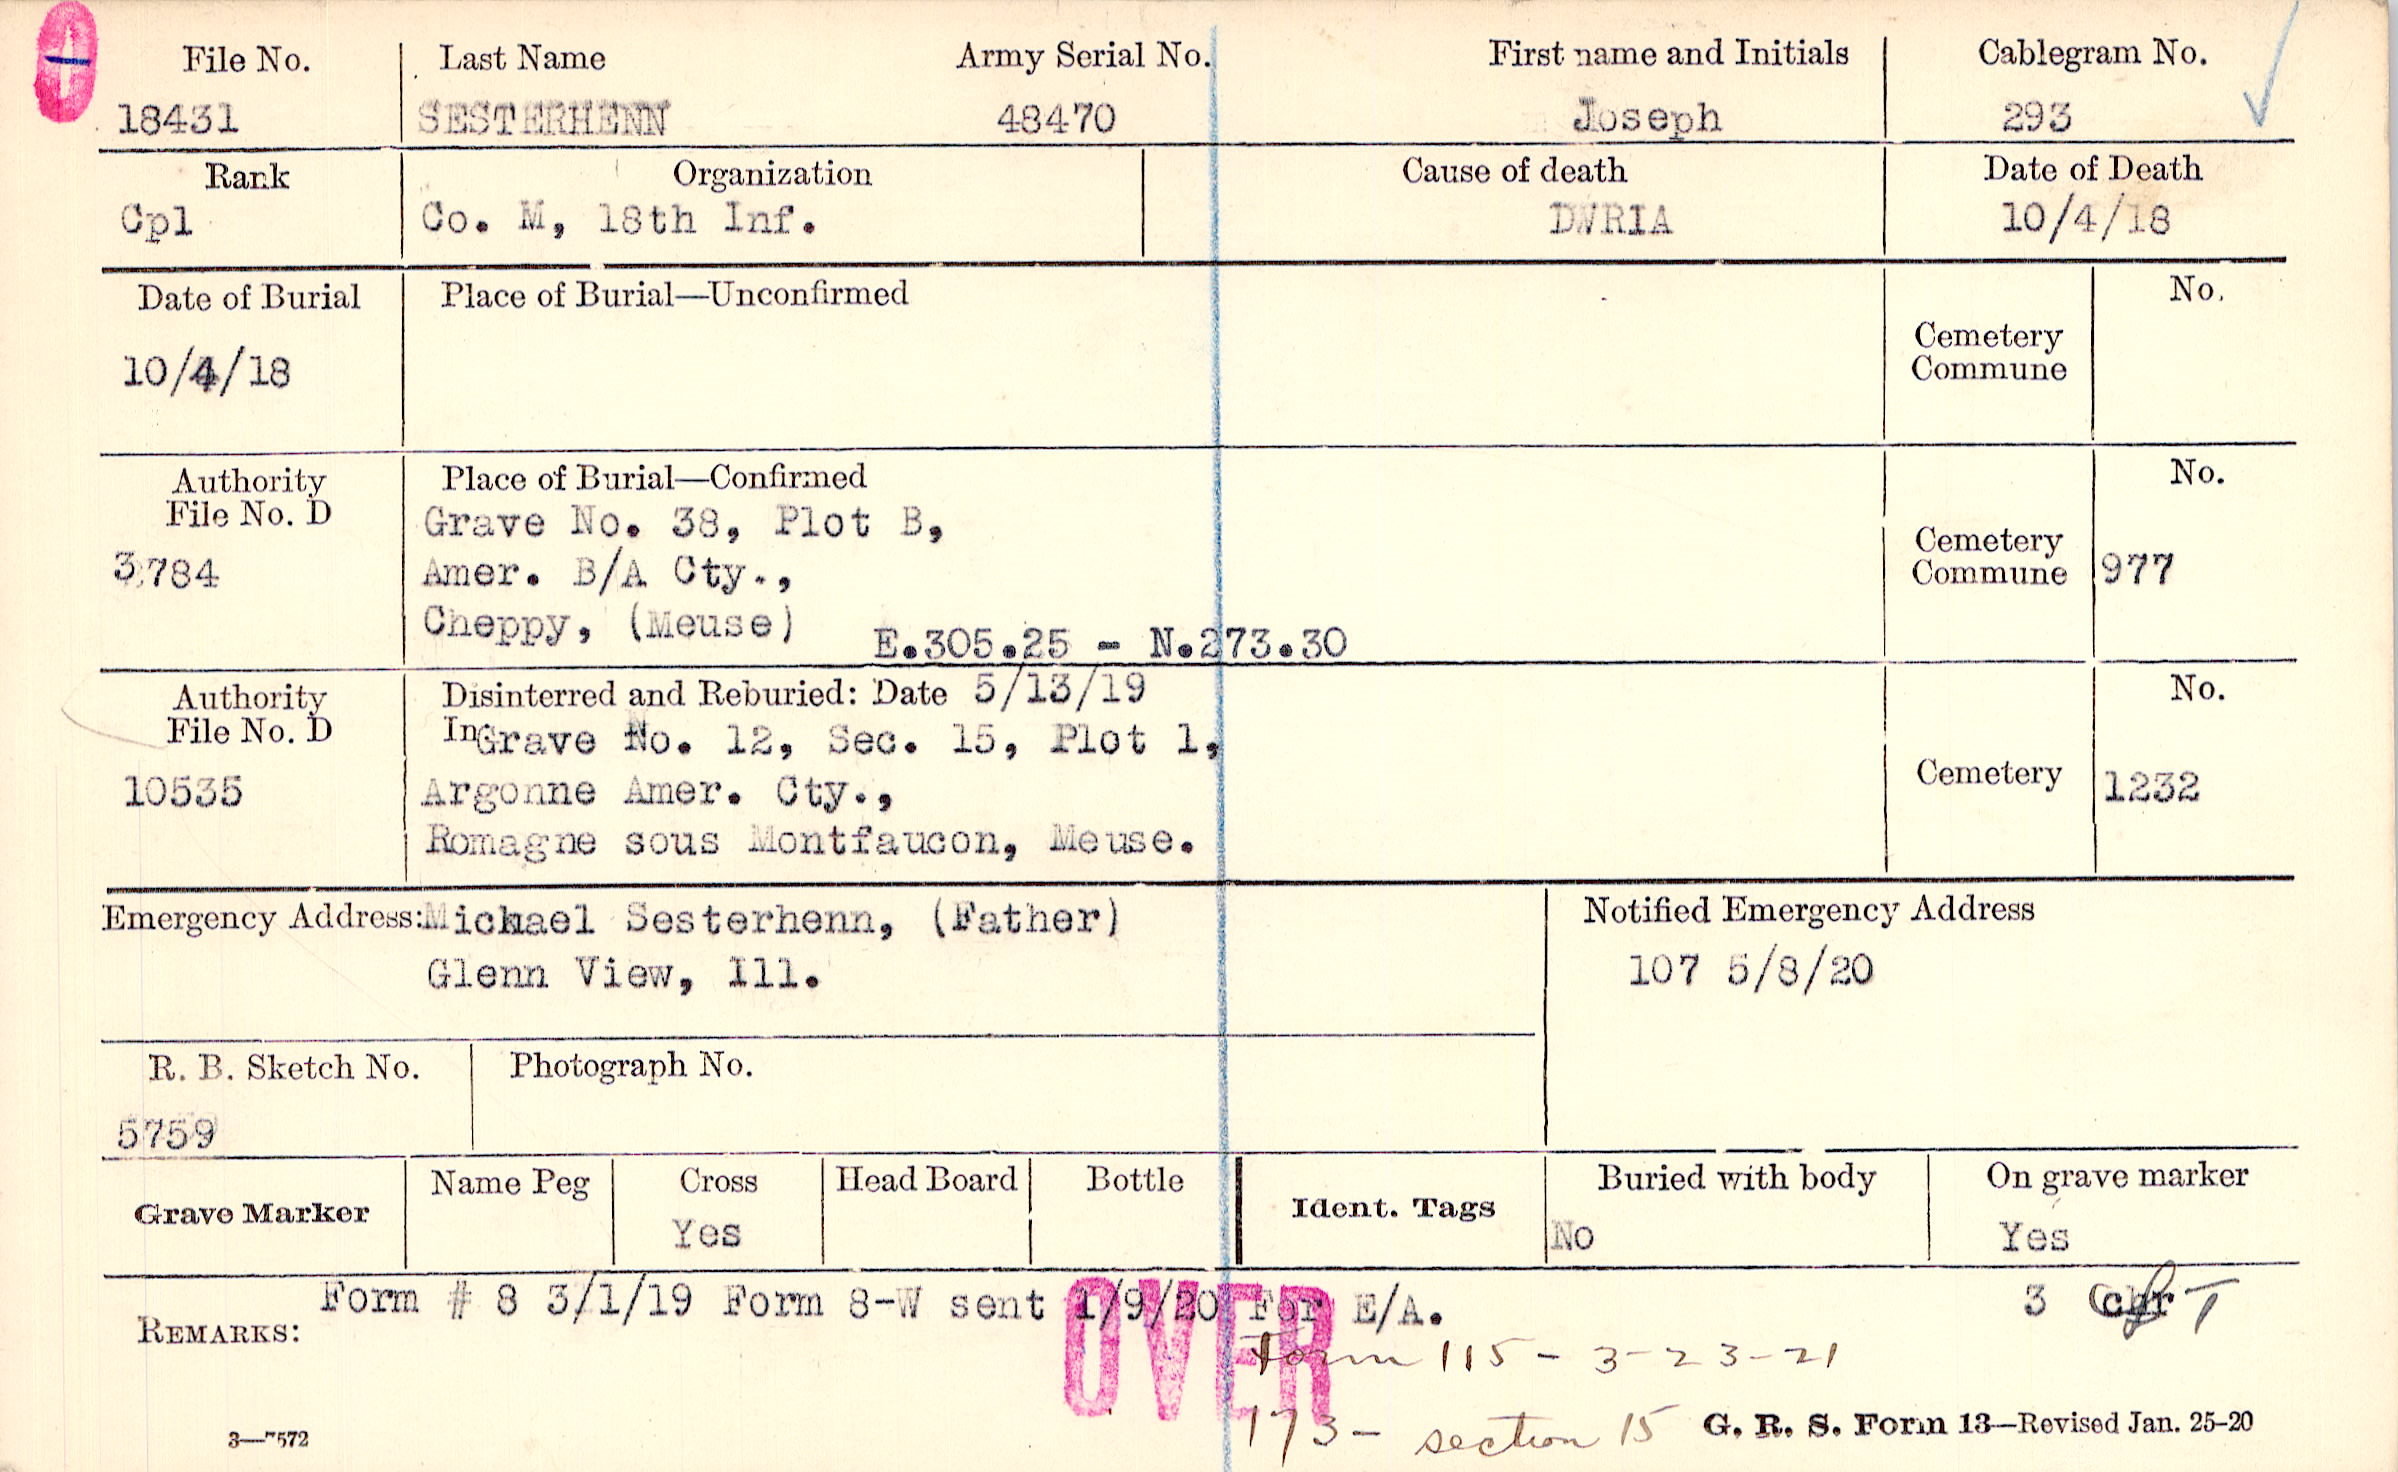 File No. Last Name Army Serial No. First name and Initials Cablegram No.
18431 SESTERHENN 48470 Joseph 293
Rank Organization Cause of death Date of Death
Cpl Co. M, 18th Inf. DWRIA 10/4/18
Date of Burial Place of Burial—Unconfirmed No.
Cemetery
Commune
10/4/18
Authority Place of Burial—Confirmed No.
File No. D Grave No. 38, Plot B,
3784 Amer. B/A Cty., Cemetery
Commune 977
Cheppy, (Meuse) E.305.25 - N.273.30
Authority Disinterred and Reburied: Date 5/13/19 No.
File No. D In Grave No. 12, Sec. 15, Plot 1,
10535 Argonne Amer. Cty., Cemetery 1232
Romagne sous Montfaucon, Meuse.
Emergency Address: Michael Sesterhenn, (Father) Notified Emergency Address
Glenn View, Ill. 107 5/8/20
R. B. Sketch No. Photograph No.
5759
Grave Marker Name Peg Cross Head Board Bottle Ident. Tags Buried with body On grave marker
Yes No Yes
Form # 8 3/1/19 Form 8-W sent 1/9/20 For E/A. 3
REMARKS: OVER
Form 115 - 3-23-21
173 - section 15
3—7572 G. R. S. Form 13—Revised Jan. 25-20